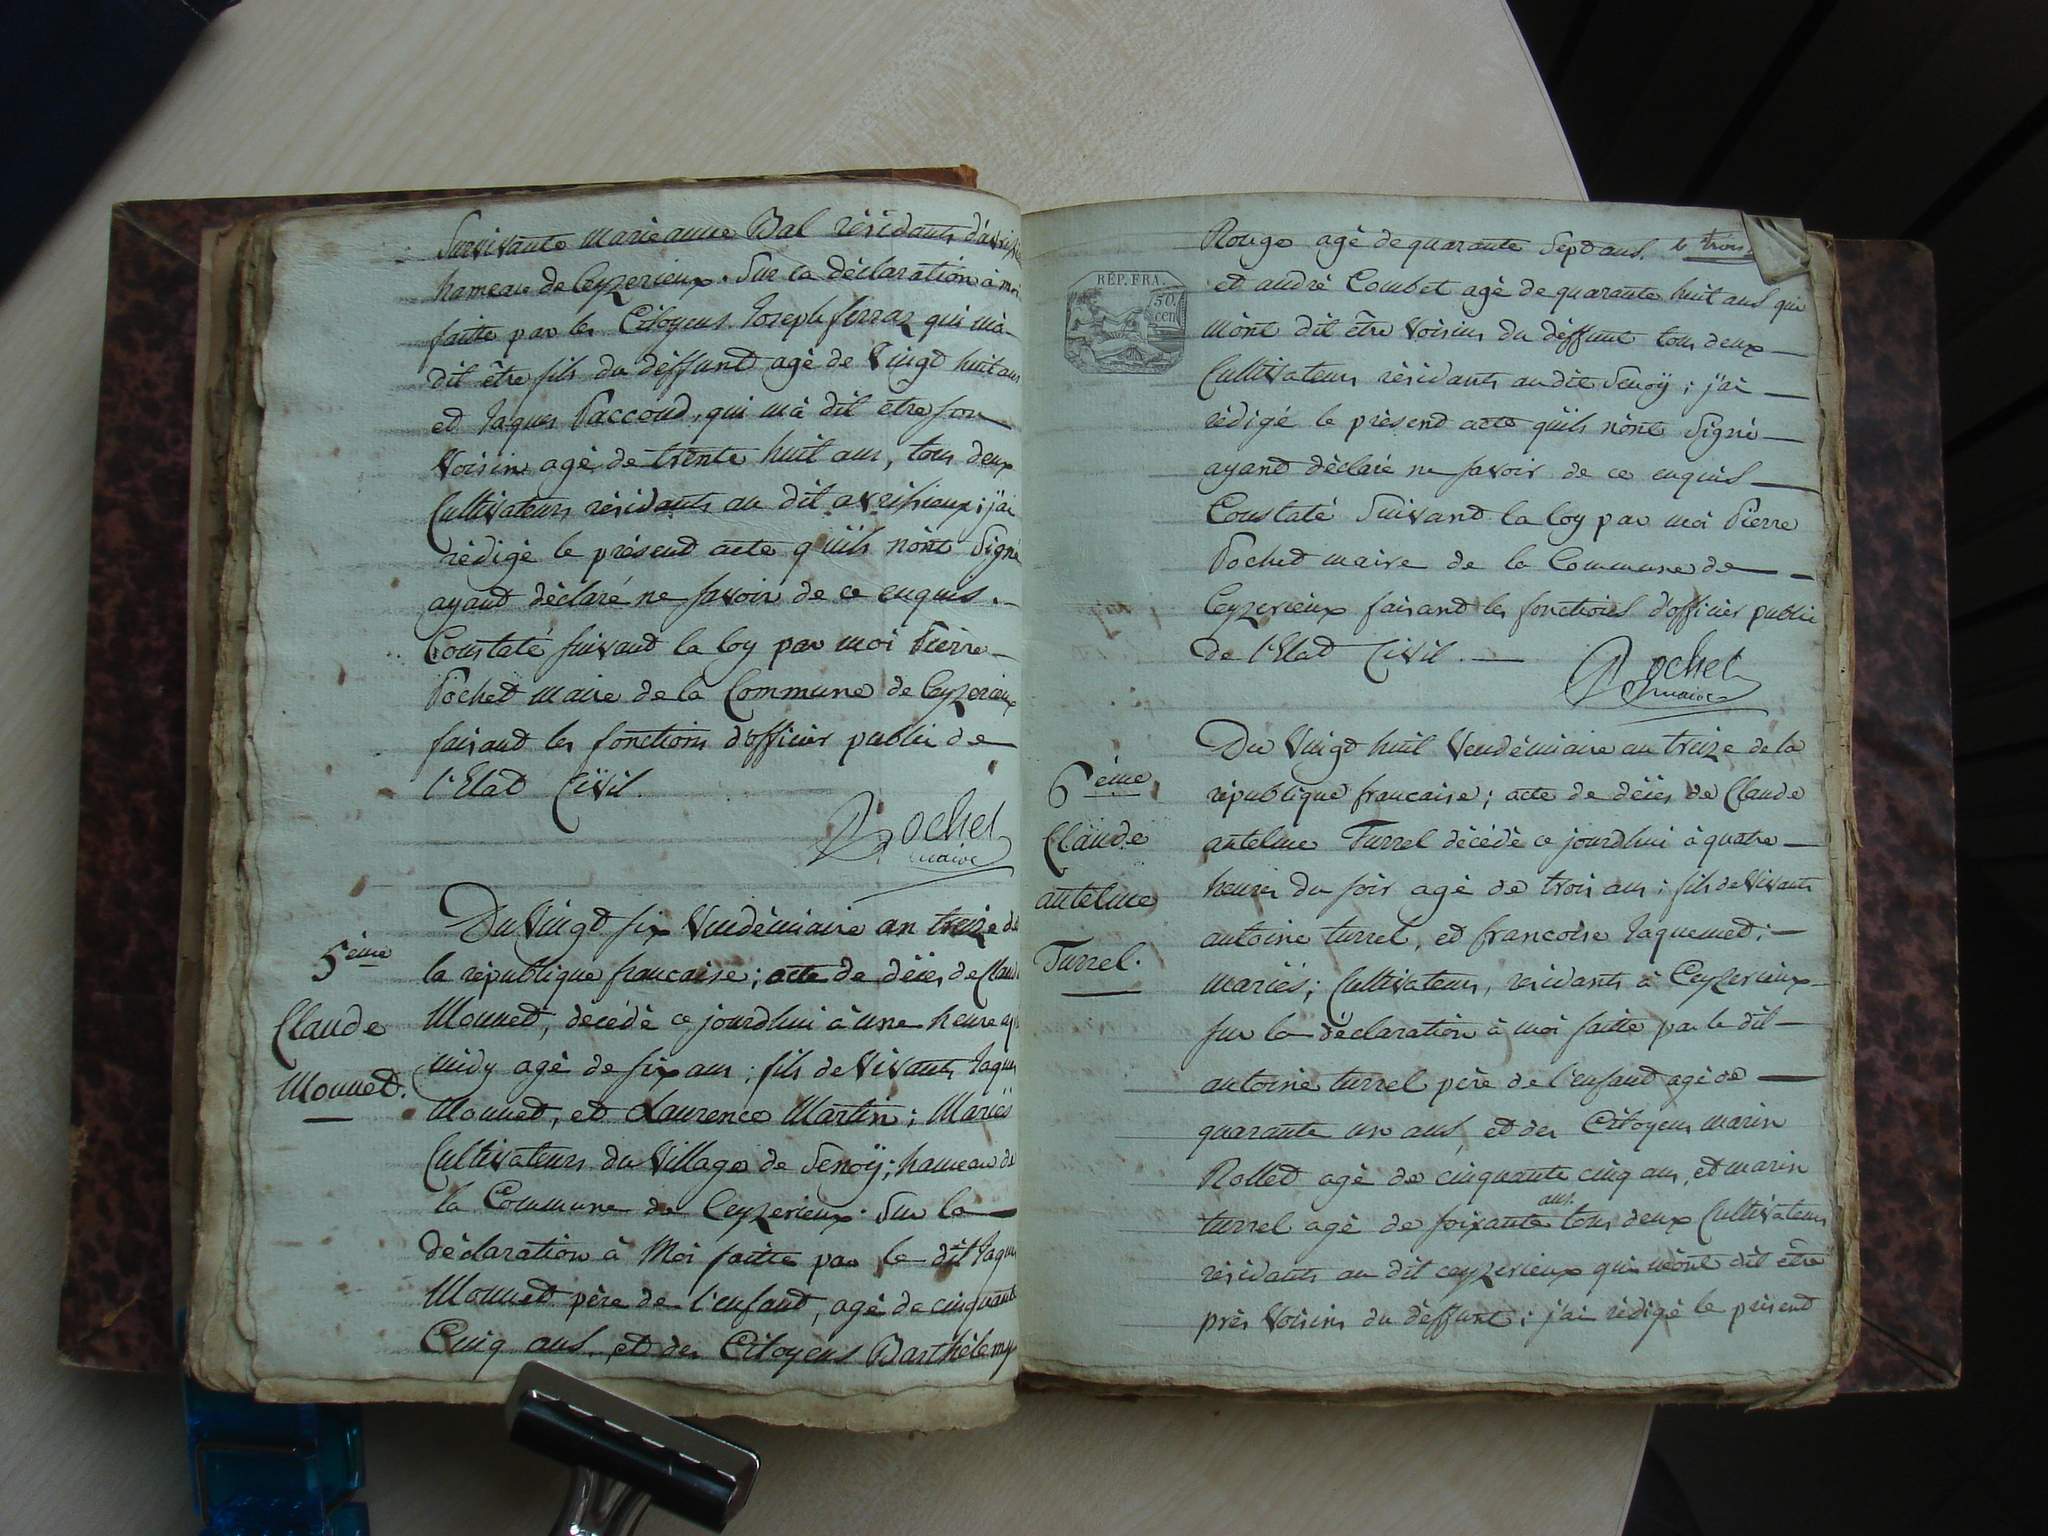 Survivante marieanne Bal résidants d'avrisi
hameau de Ceyzerieux. Sur la déclaration à moi
faitte par les Citoyens Joseph ferraz qui mà
dit être fils du déffund agé de Vingt huit ans
et Jaques Paccoud, qui mà dil etre son
Voisin agé de trente huit ans, tous deux
Cultivateurs résidants au dit avrissieux; j'ai
rédigé le présend acte quïls nônt Signé
ayand déclaré ne savoir de ce enquis.
Constaté suivand la loy par moi Pierre
Pochet maire de la Commune de Ceyzerieux
faisand les fonctions d'officier public de
l'Etad Civil.
Pochet
maire
Du Vingt six Vendémiaire an treize de
5ème
la république francaise; acte de décés de Claude
Claude
Monned, décédé ce jourdhui à une heure
midy agé de six ans; fils de Vivants Jaques
Monned.
Monned, et Laurence Martin; Mariés
Cultivateurs du Village de Senoÿ; hameau de
la Commune de Ceyzerieux. Sur la
déclaration à Moi faitte par le dit Jaques
Monned père de l'enfand, agé de cinquante
Cinq ans, et des Citoyens Barthélemy
Rouge agé de quarante Sept ans. le trois
RÉP. FRA.
50.
cen
et andré Combet agé de quarante huit ans qui
mônt dit être Voisins du déffunt tous deux
Cultivateurs résidants audit Senoÿ; j'ai
rédigé le présend acte quïls nônt Signé
ayand déclaré ne savoir de ce enquis
Constaté Suivand la loy par moi Pierre
Pochet maire de la Commune de
Ceyzerieux faisand les fonctions d'officier public
de l'Etad Civil.
Pochet
maire
Du Vingt huit Vendémiaire an treize de la
6ème
république francaise; acte de décés de Claude
Claude
antelme Turrel décédé ce jourdhui à quatre
antelme
heures du soir agé de trois ans; fils de Vivants
antoine turrel, et francoise Jaquemed;
Turrel.
mariés; Cultivateurs, résidants à Ceyzerieux
sur la déclaration à moi faitte par le dit
antoine turrel père de l'enfand agé de
quarante un ans, et des Citoyens marin
Rolled agé de cinquante cinq ans, et marin
ans.
turrel agé de soixante tous deux Cultivateurs
résidants au dit ceyzerieux qui mônt dit être
près Voisins du déffunt; j'ai rédigé le présend